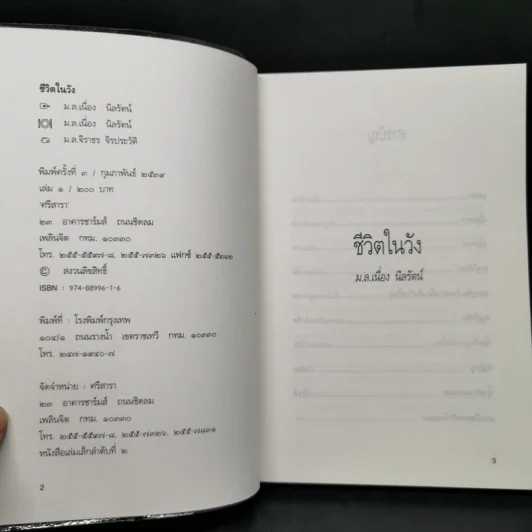 ชีวิตในวัง
ม.ล.เนื่อง นิลรัตน์
ม.ล.เนื่อง นิลรัตน์
ม.ล.จิราธร จิรประวัติ
พิมพ์ครั้งที่ ๓ / กุมภาพันธ์ ๒๕๓๙
เล่ม ๑ / ๒๐๐ บาท
'ศรีสารา'
๒๓ อาคารชาร์มส์ ถนนชิดลม
เพลินจิต กทม. ๑๐๓๓๐
โทร. ๒๕๕-๕๕๙๗-๘, ๒๕๕-๗๓๒๖ แฟกซ์ ๒๕๕-๕๒๑๒
© สงวนลิขสิทธิ์
ISBN : 974-88996-1-6
พิมพ์ที่ : โรงพิมพ์กรุงเทพ
๑๐๙/๑ ถนนรางน้ำ เขตราชเทวี กทม. ๑๐๓๓๐
โทร. ๒๔๗-๑๙๔๐-๗
จัดจำหน่าย : ศรีสารา
๒๓ อาคารชาร์มส์ ถนนชิดลม
เพลินจิต กทม. ๑๐๓๓๐
โทร. ๒๕๕-๕๕๙๗-๘, ๒๕๕-๗๓๒๖, ๒๕๕-๗๘๓๑
หนังสือเล่มเล็กลำดับที่ ๒
2
ชีวิตในวัง
ม.ล.เนื่อง นิลรัตน์
3